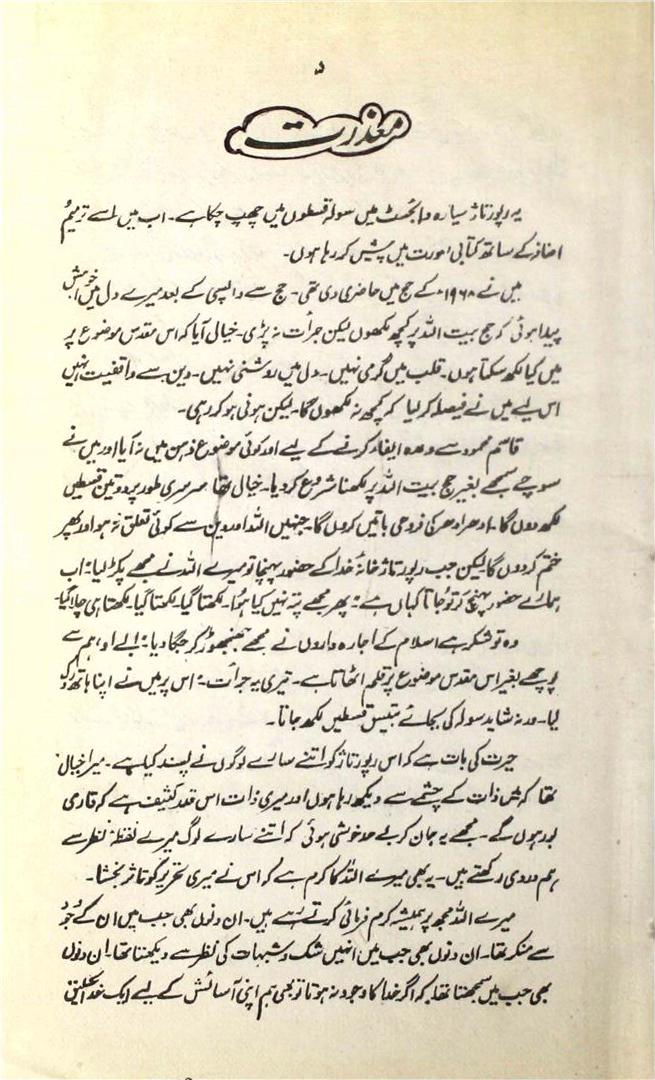 ۵
معذرت
یہ رپورتاژ سیارہ ڈائجسٹ میں سولہ قسطوں میں چھپ چکا ہے۔ اب میں اسے ترمیم و
اضافے کے ساتھ کتابی صورت میں پیش کر رہا ہوں۔
میں نے ۱۹۶۸ء کے حج میں حاضری دی تھی۔ حج سے واپسی کے بعد میرے دل میں خواہش
پیدا ہوئی کہ حج بیت اللہ پر کچھ لکھوں لیکن جرأت نہ پڑی۔ خیال آیا کہ اس مقدس موضوع پر
میں کیا لکھ سکتا ہوں۔ قلب میں گرمی نہیں۔ دل میں روشنی نہیں۔ دین سے واقفیت نہیں
اس لیے میں نے فیصلہ کر لیا کہ کچھ نہ لکھوں گا۔ لیکن ہونی ہو کر رہی۔
قاسم محمود سے وعدہ ایفاء کرنے کے لیے اور کوئی موضوع ذہن میں نہ آیا اور میں نے
سوچے سمجھے بغیر حج بیت اللہ پر لکھنا شروع کر دیا۔ خیال تھا سرسری طور پر دو تین قسطیں
لکھ دوں گا۔ ادھر ادھر کی فروعی باتیں کروں گا۔ جنہیں اللہ اور دین سے کوئی تعلق نہ ہو اور پھر
ختم کر دوں گا لیکن جب رپورتاژ خانۂ خدا کے حضور پہنچا تو میرے اللہ نے مجھے پکڑ لیا: اب
ہمارے حضور پہنچ کر تو جاتا کہاں ہے: پھر مجھے پتہ نہیں کیا ہوا۔ لکھتا گیا۔ لکھتا گیا۔ لکھتا ہی چلا گیا۔
وہ تو شکر ہے اسلام کے اجارہ داروں نے مجھے جھنجھوڑ کر جگا دیا: ابے او، ہم سے
پوچھے بغیر اس مقدس موضوع پر قلم اٹھاتا ہے۔ تیری یہ جرأت: اس پر میں نے اپنا ہاتھ روک
لیا۔ ورنہ شاید سولہ کی بجائے بتیس قسطیں لکھ جاتا۔
حیرت کی بات ہے کہ اس رپورتاژ کو اتنے سارے لوگوں نے پسند کیا ہے۔ میرا خیال
تھا کہ میں ذات کے چشمے سے دیکھ رہا ہوں اور میری ذات اس قدر کثیف ہے کہ قاری
بور ہوں گے۔ مجھے یہ جان کر بے حد خوشی ہوئی کہ اتنے سارے لوگ میرے نقطۂ نظر سے
ہم دردی رکھتے ہیں۔ یہ بھی میرے اللہ کا کرم ہے کہ اس نے میری تحریر کو تاثر بخشا۔
میرے اللہ مجھ پر ہمیشہ کرم فرمائی کرتے رہے ہیں۔ ان دنوں بھی جب میں ان کے وجود
سے منکر تھا۔ ان دنوں بھی جب میں انہیں شک و شبہات کی نظر سے دیکھتا تھا۔ ان دنوں
بھی جب میں سمجھتا تھا کہ اگر خدا کا وجود نہ ہوتا تو بھی ہم اپنی آسائش کے لیے ایک خدا تخلیق